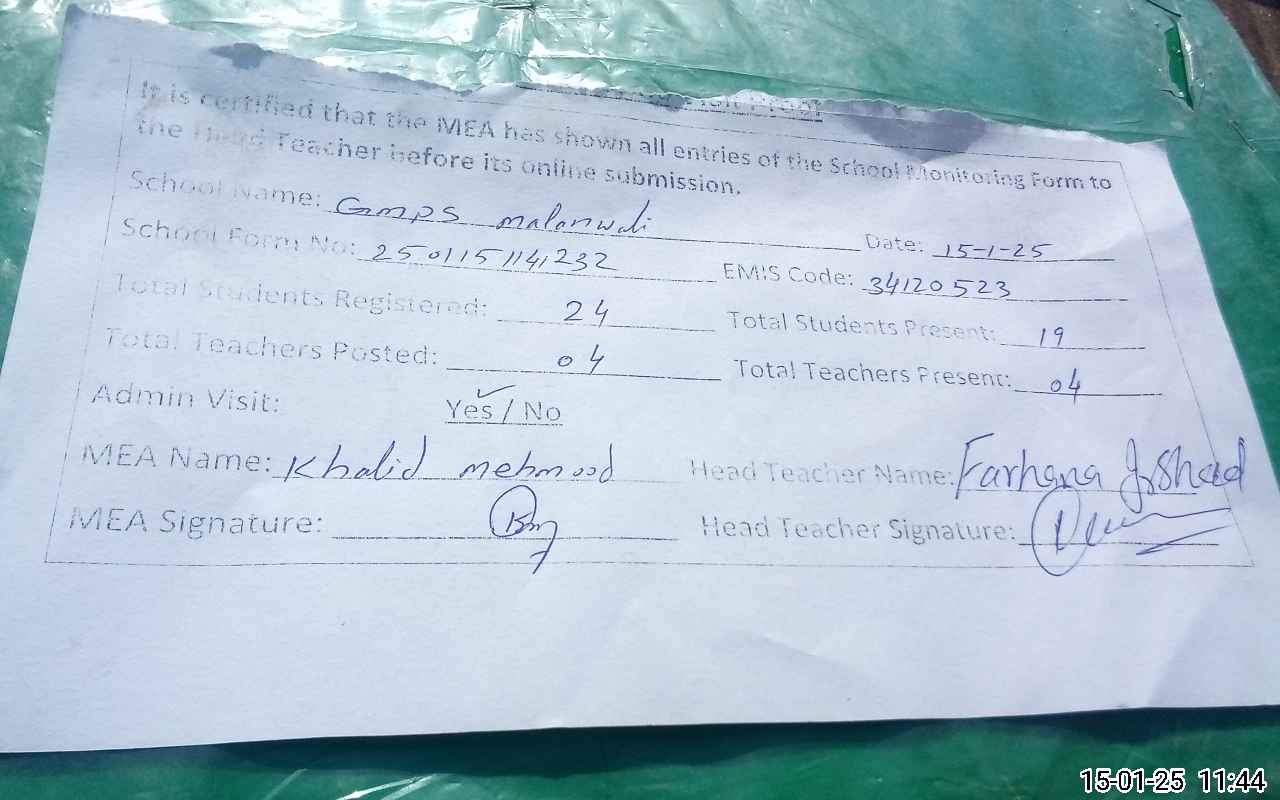 It is certified that the MEA has shown all entries of the School Monitoring Form to
the Head Teacher before its online submission.
School Name: GMPS malanwali
Date: 15-1-25
School Form No: 250115114232
EMIS Code: 34120523
Total Students Registered: 24
Total Students Present: 19
Total Teachers Posted: 04
Total Teachers Present: 04
Admin Visit: Yes / No
MEA Name: Khalid mehmood
Head Teacher Name: Farhana Irshad
MEA Signature:
Head Teacher Signature:
15-01-25 11:44